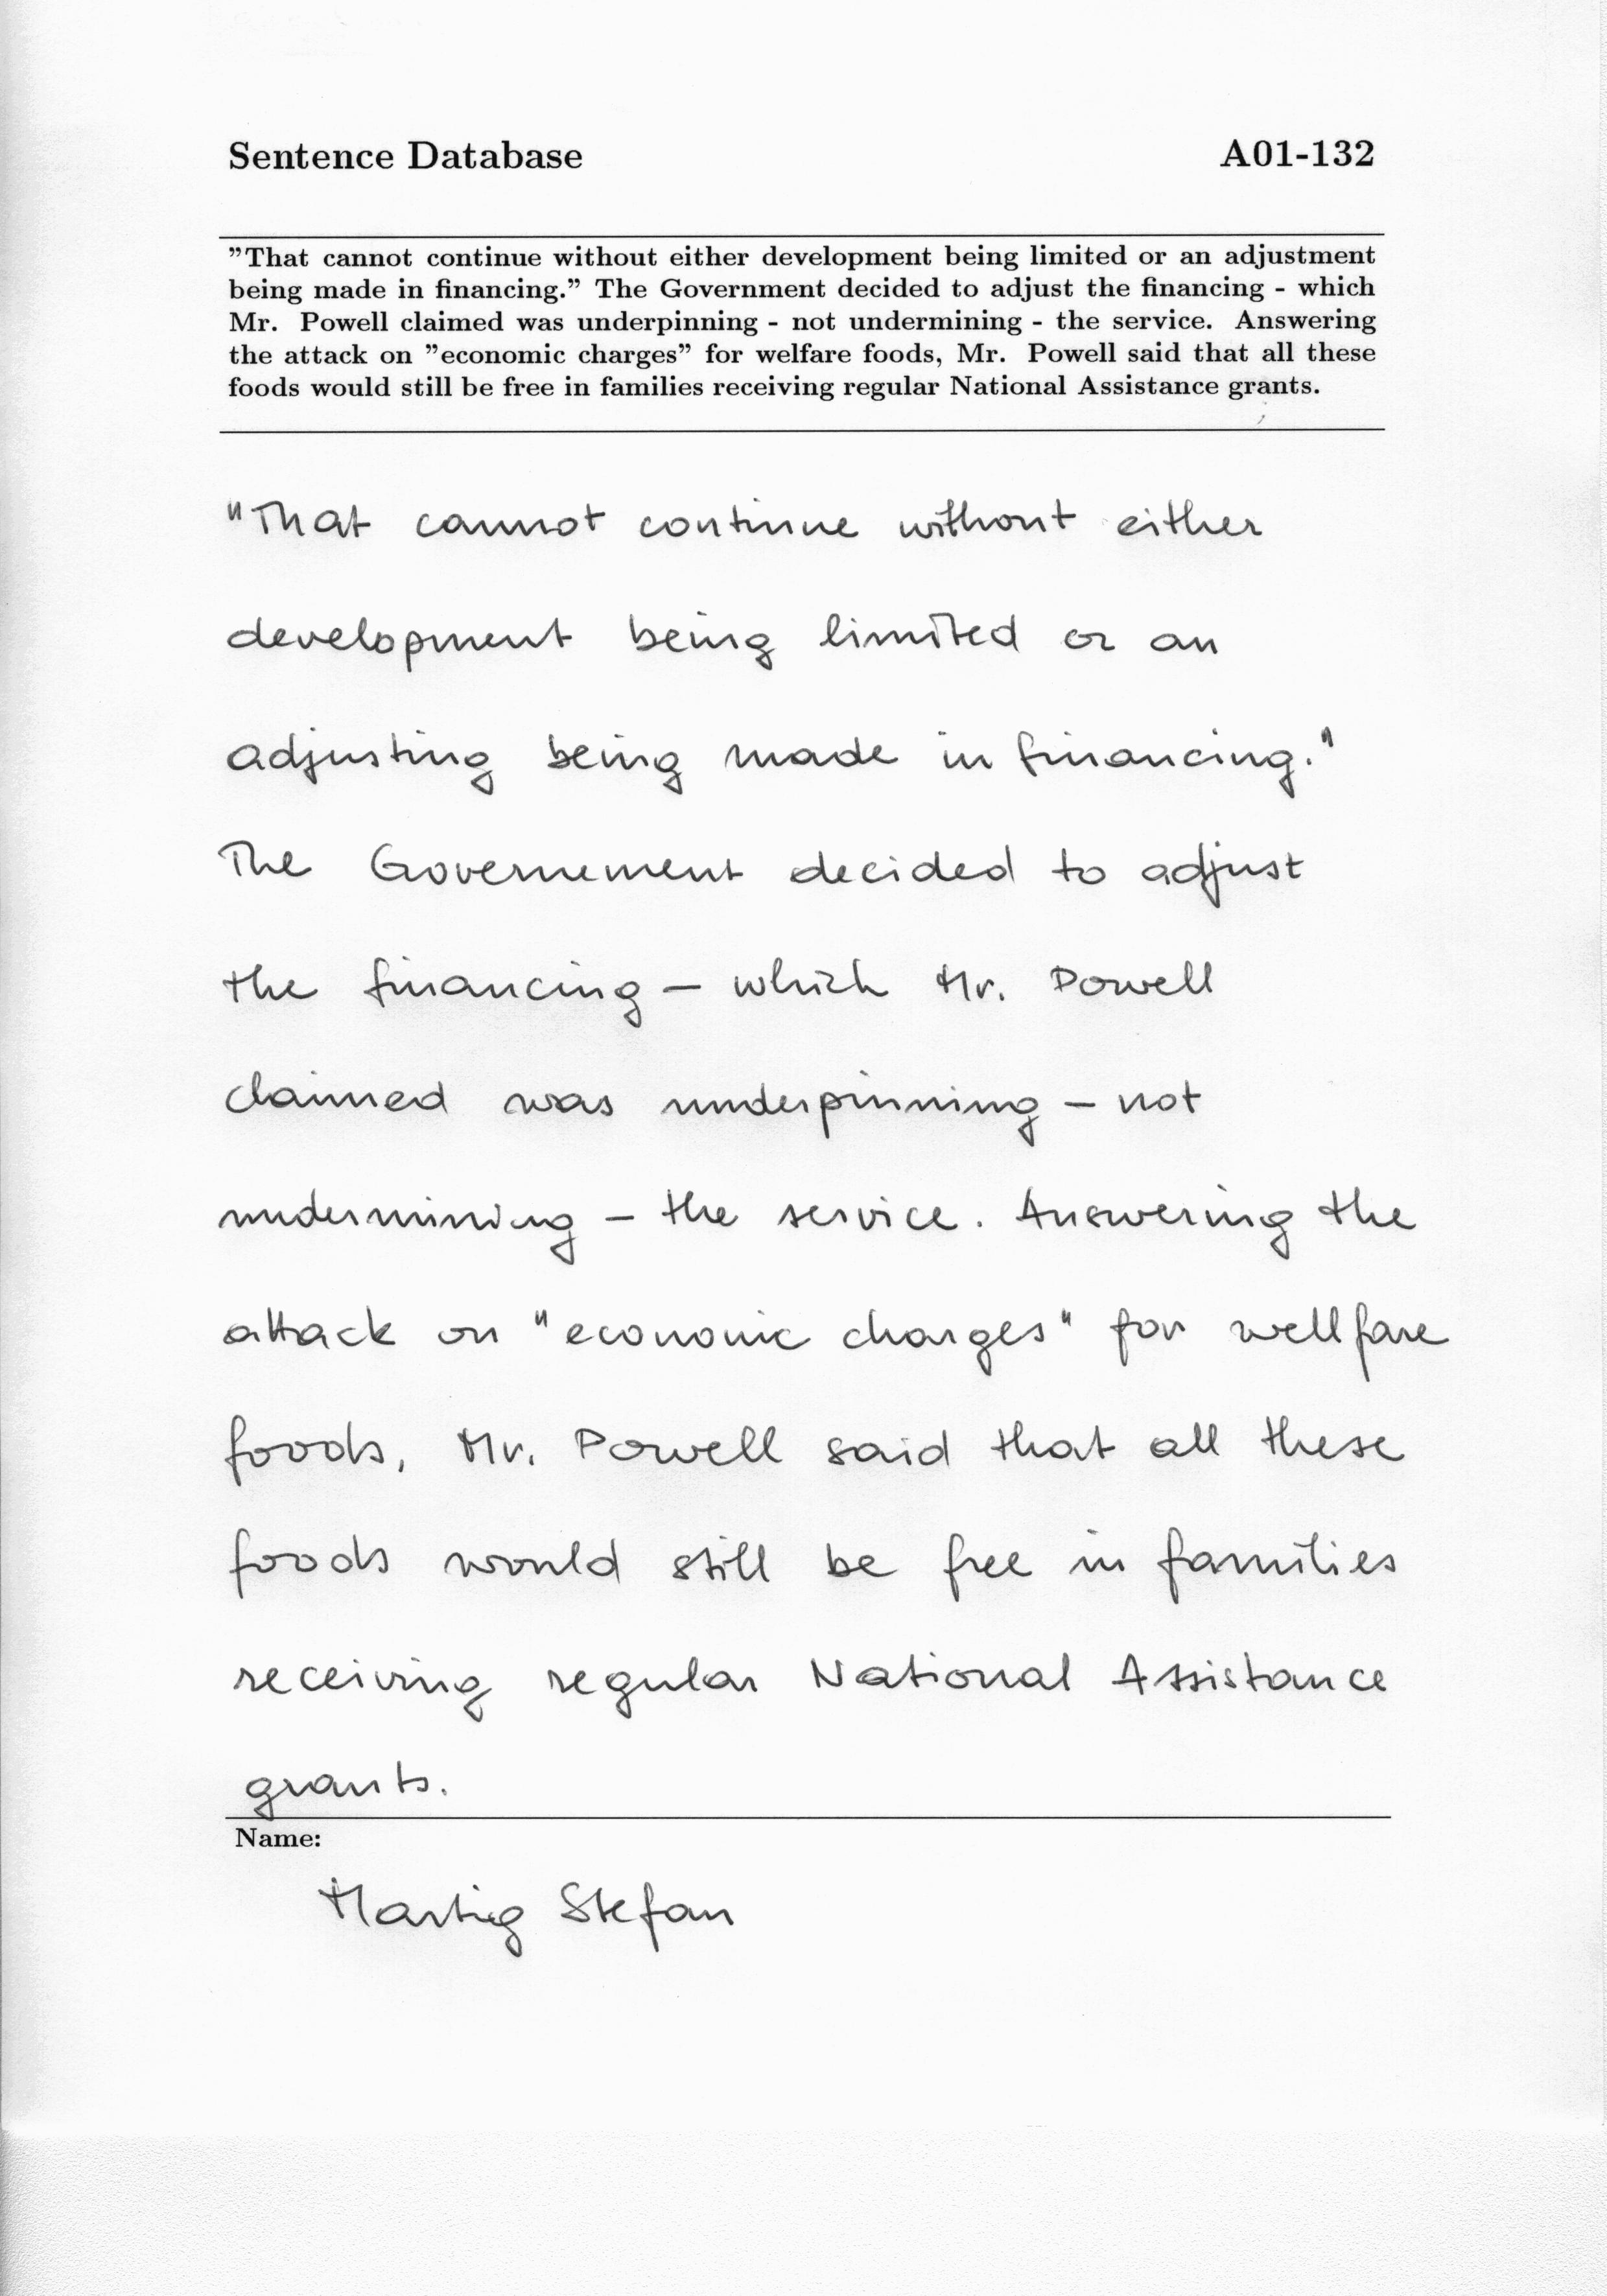 Sentence Database A01-132
”That cannot continue without either development being limited or an adjustment
being made in financing.” The Government decided to adjust the financing - which
Mr. Powell claimed was underpinning - not undermining - the service. Answering
the attack on ”economic charges” for welfare foods, Mr. Powell said that all these
foods would still be free in families receiving regular National Assistance grants.
"That cannot continue without either
development being limited or an
adjusting being made in financing."
The Governement decided to adjust
the financing – which Mr. Powell
claimed was underpinning – not
undermining – the service. Answering the
attack on "economic charges" for wellfare
foods, Mr. Powell said that all these
foods would still be free in families
receiving regular National Assistance
grants.
Name:
Martig Stefan